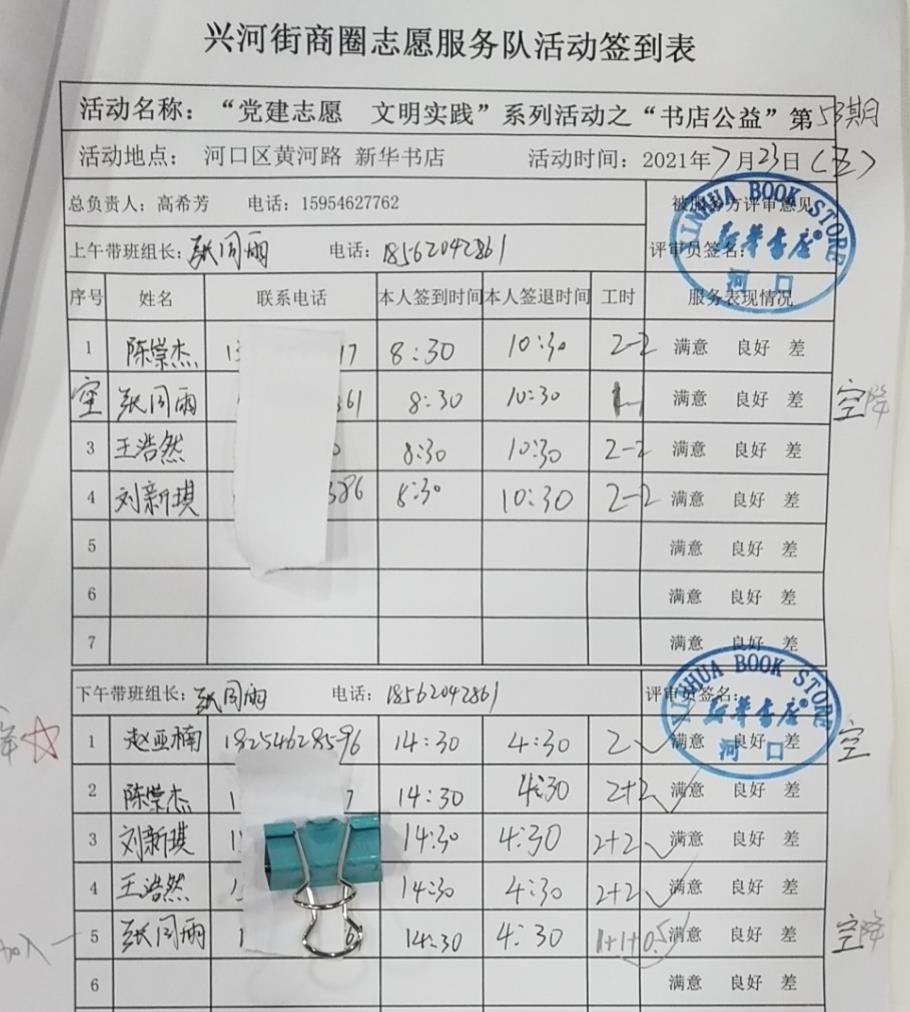 兴河街商圈志愿服务队活动签到表
活动名称：“党建志愿 文明实践”系列活动之“书店公益”第53期
活动地点：河口区黄河路 新华书店 活动时间：2021年7月23日(五)
总负责人：高希芳 电话：15954627762 被服务方评审意见
上午带班组长：张同雨 电话：18562042861 评审员签名：
XINHUA BOOK STORE
新华书店
河口
序号 姓名 联系电话 本人签到时间 本人签退时间 工时 服务表现情况
1 陈崇杰 1 17 8:30 10:30 2-2 满意 良好 差
空 张同雨 861 8:30 10:30 1-1 满意 良好 差 空降
3 王浩然 0 8:30 10:30 2-2 满意 良好 差
4 刘新琪 386 8:30 10:30 2-2 满意 良好 差
5 满意 良好 差
6 满意 良好 差
7 满意 良好 差
下午带班组长：张同雨 电话：18562042861 评审员签名：
XINHUA BOOK STORE
新华书店
河口
1 赵亚楠 18254628596 14:30 4:30 2 满意 良好 差 空
2 陈崇杰 1 7 14:30 4:30 2+2 满意 良好 差
3 刘新琪 1 14:30 4:30 2+2 满意 良好 差
4 王浩然 1 14:30 4:30 2+2 满意 良好 差
加入 5 张同雨 1 6 14:30 4:30 1+1+0.5 满意 良好 差 空降
6 满意 良好 差